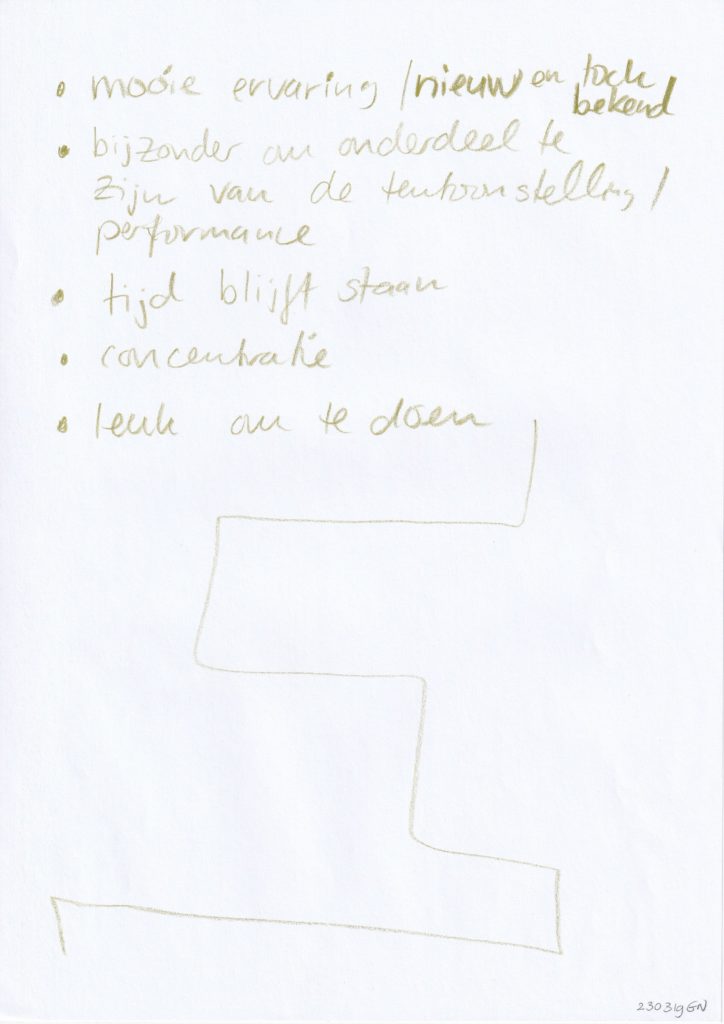 • mooie ervaring / nieuw en toch
bekend
• bijzonder om onderdeel te
zijn van de tentoonstelling /
performance
• tijd blijft staan
• concentratie
• leuk om te doen
230319GN